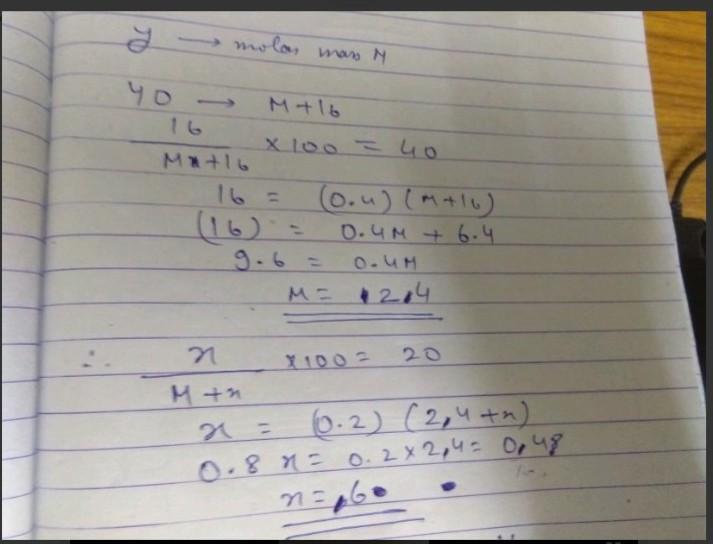 y → molar mass M
YO → M+16
16 / M+16 × 100 = 40
16 = (0.4) (M+16)
(16) = 0.4M + 6.4
9.6 = 0.4M
M = 2,4
∴ x / M+x × 100 = 20
x = (0.2) (2,4+x)
0.8 x = 0.2 × 2,4 = 0,48
x = ,60